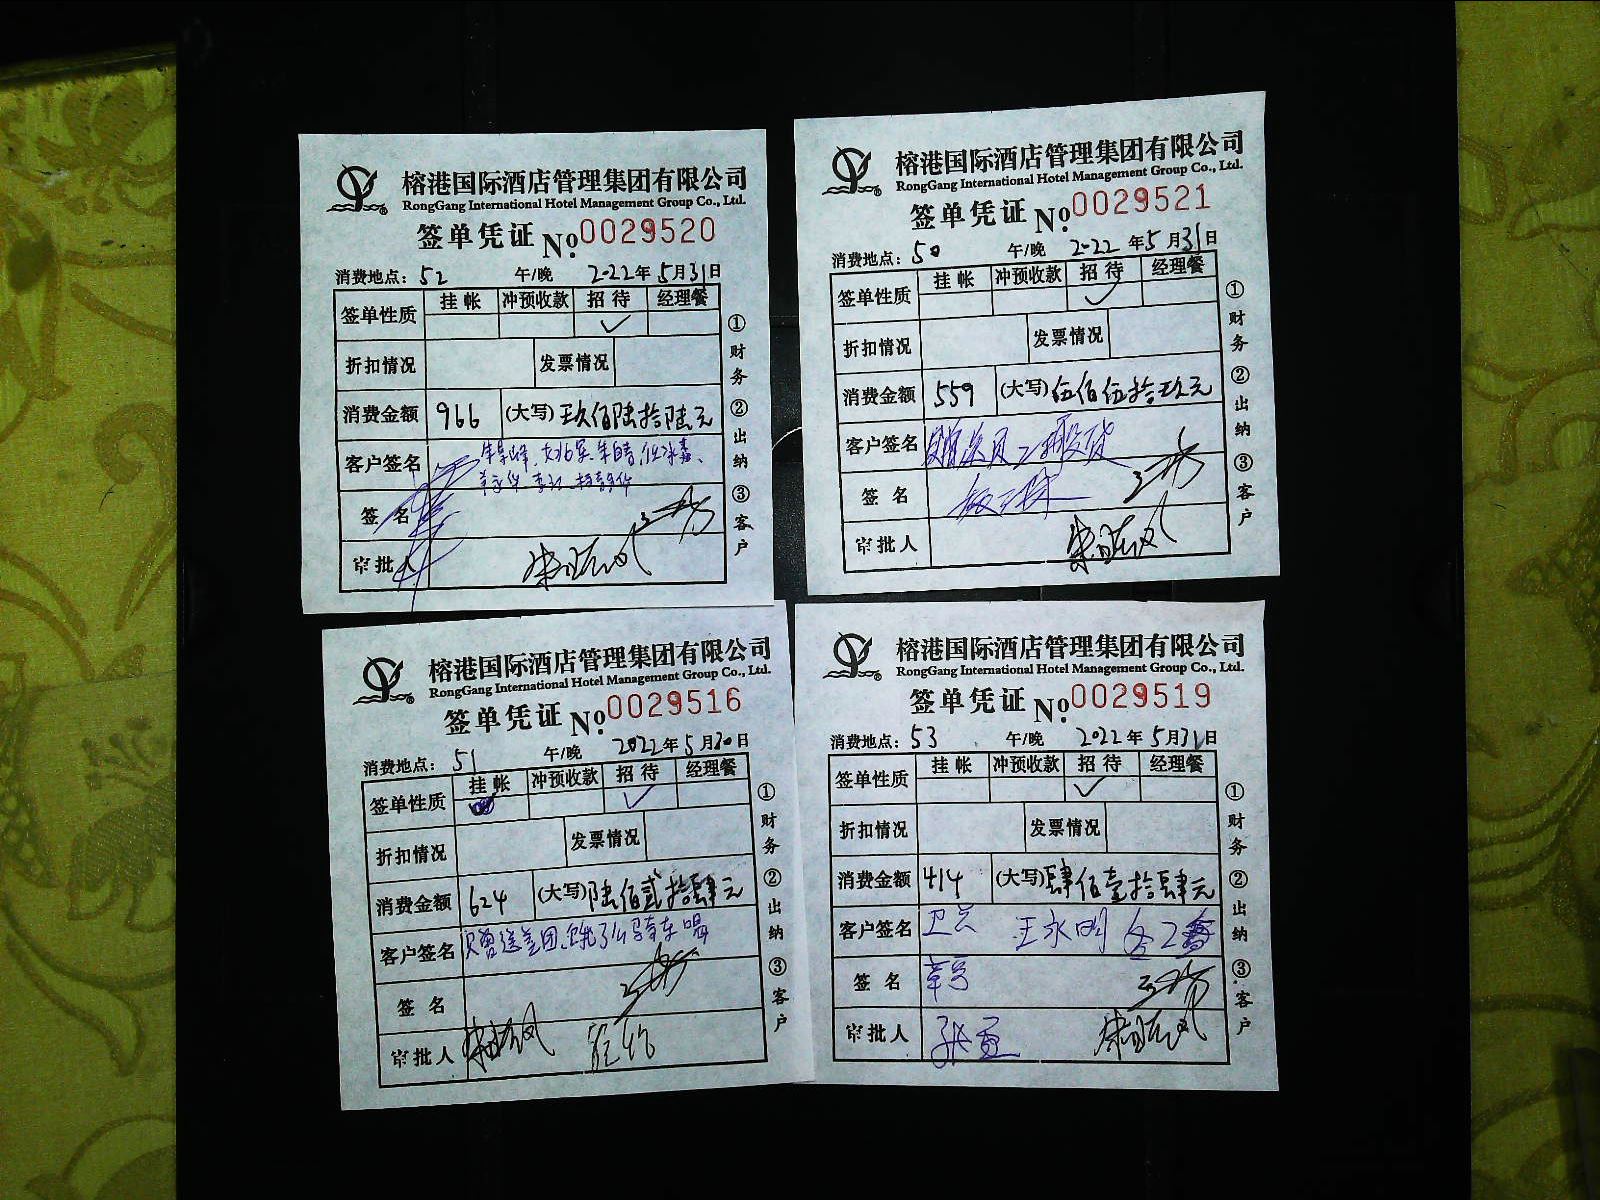 榕港国际酒店管理集团有限公司
RongGang International Hotel Management Group Co., Ltd.
签单凭证 No.0029520
消费地点：52 午/晚 2022年5月31日
签单性质 挂帐 冲预收款 招待 经理餐
✓
折扣情况 发票情况
消费金额 966 (大写)玖佰陆拾陆元
客户签名
签名
审批人
①财务②出纳③客户
榕港国际酒店管理集团有限公司
RongGang International Hotel Management Group Co., Ltd.
签单凭证 No.0029521
消费地点：50 午/晚 2022年5月31日
签单性质 挂帐 冲预收款 招待 经理餐
✓
折扣情况 发票情况
消费金额 559 (大写)伍佰伍拾玖元
客户签名
签名
审批人
①财务②出纳③客户
榕港国际酒店管理集团有限公司
RongGang International Hotel Management Group Co., Ltd.
签单凭证 No.0029516
消费地点：51 午/晚 2022年5月30日
签单性质 挂帐 冲预收款 招待 经理餐
✓
折扣情况 发票情况
消费金额 624 (大写)陆佰贰拾肆元
客户签名
签名
审批人
①财务②出纳③客户
榕港国际酒店管理集团有限公司
RongGang International Hotel Management Group Co., Ltd.
签单凭证 No.0029519
消费地点：53 午/晚 2022年5月31日
签单性质 挂帐 冲预收款 招待 经理餐
✓
折扣情况 发票情况
消费金额 414 (大写)肆佰壹拾肆元
客户签名 王永明
签名
审批人
①财务②出纳③客户